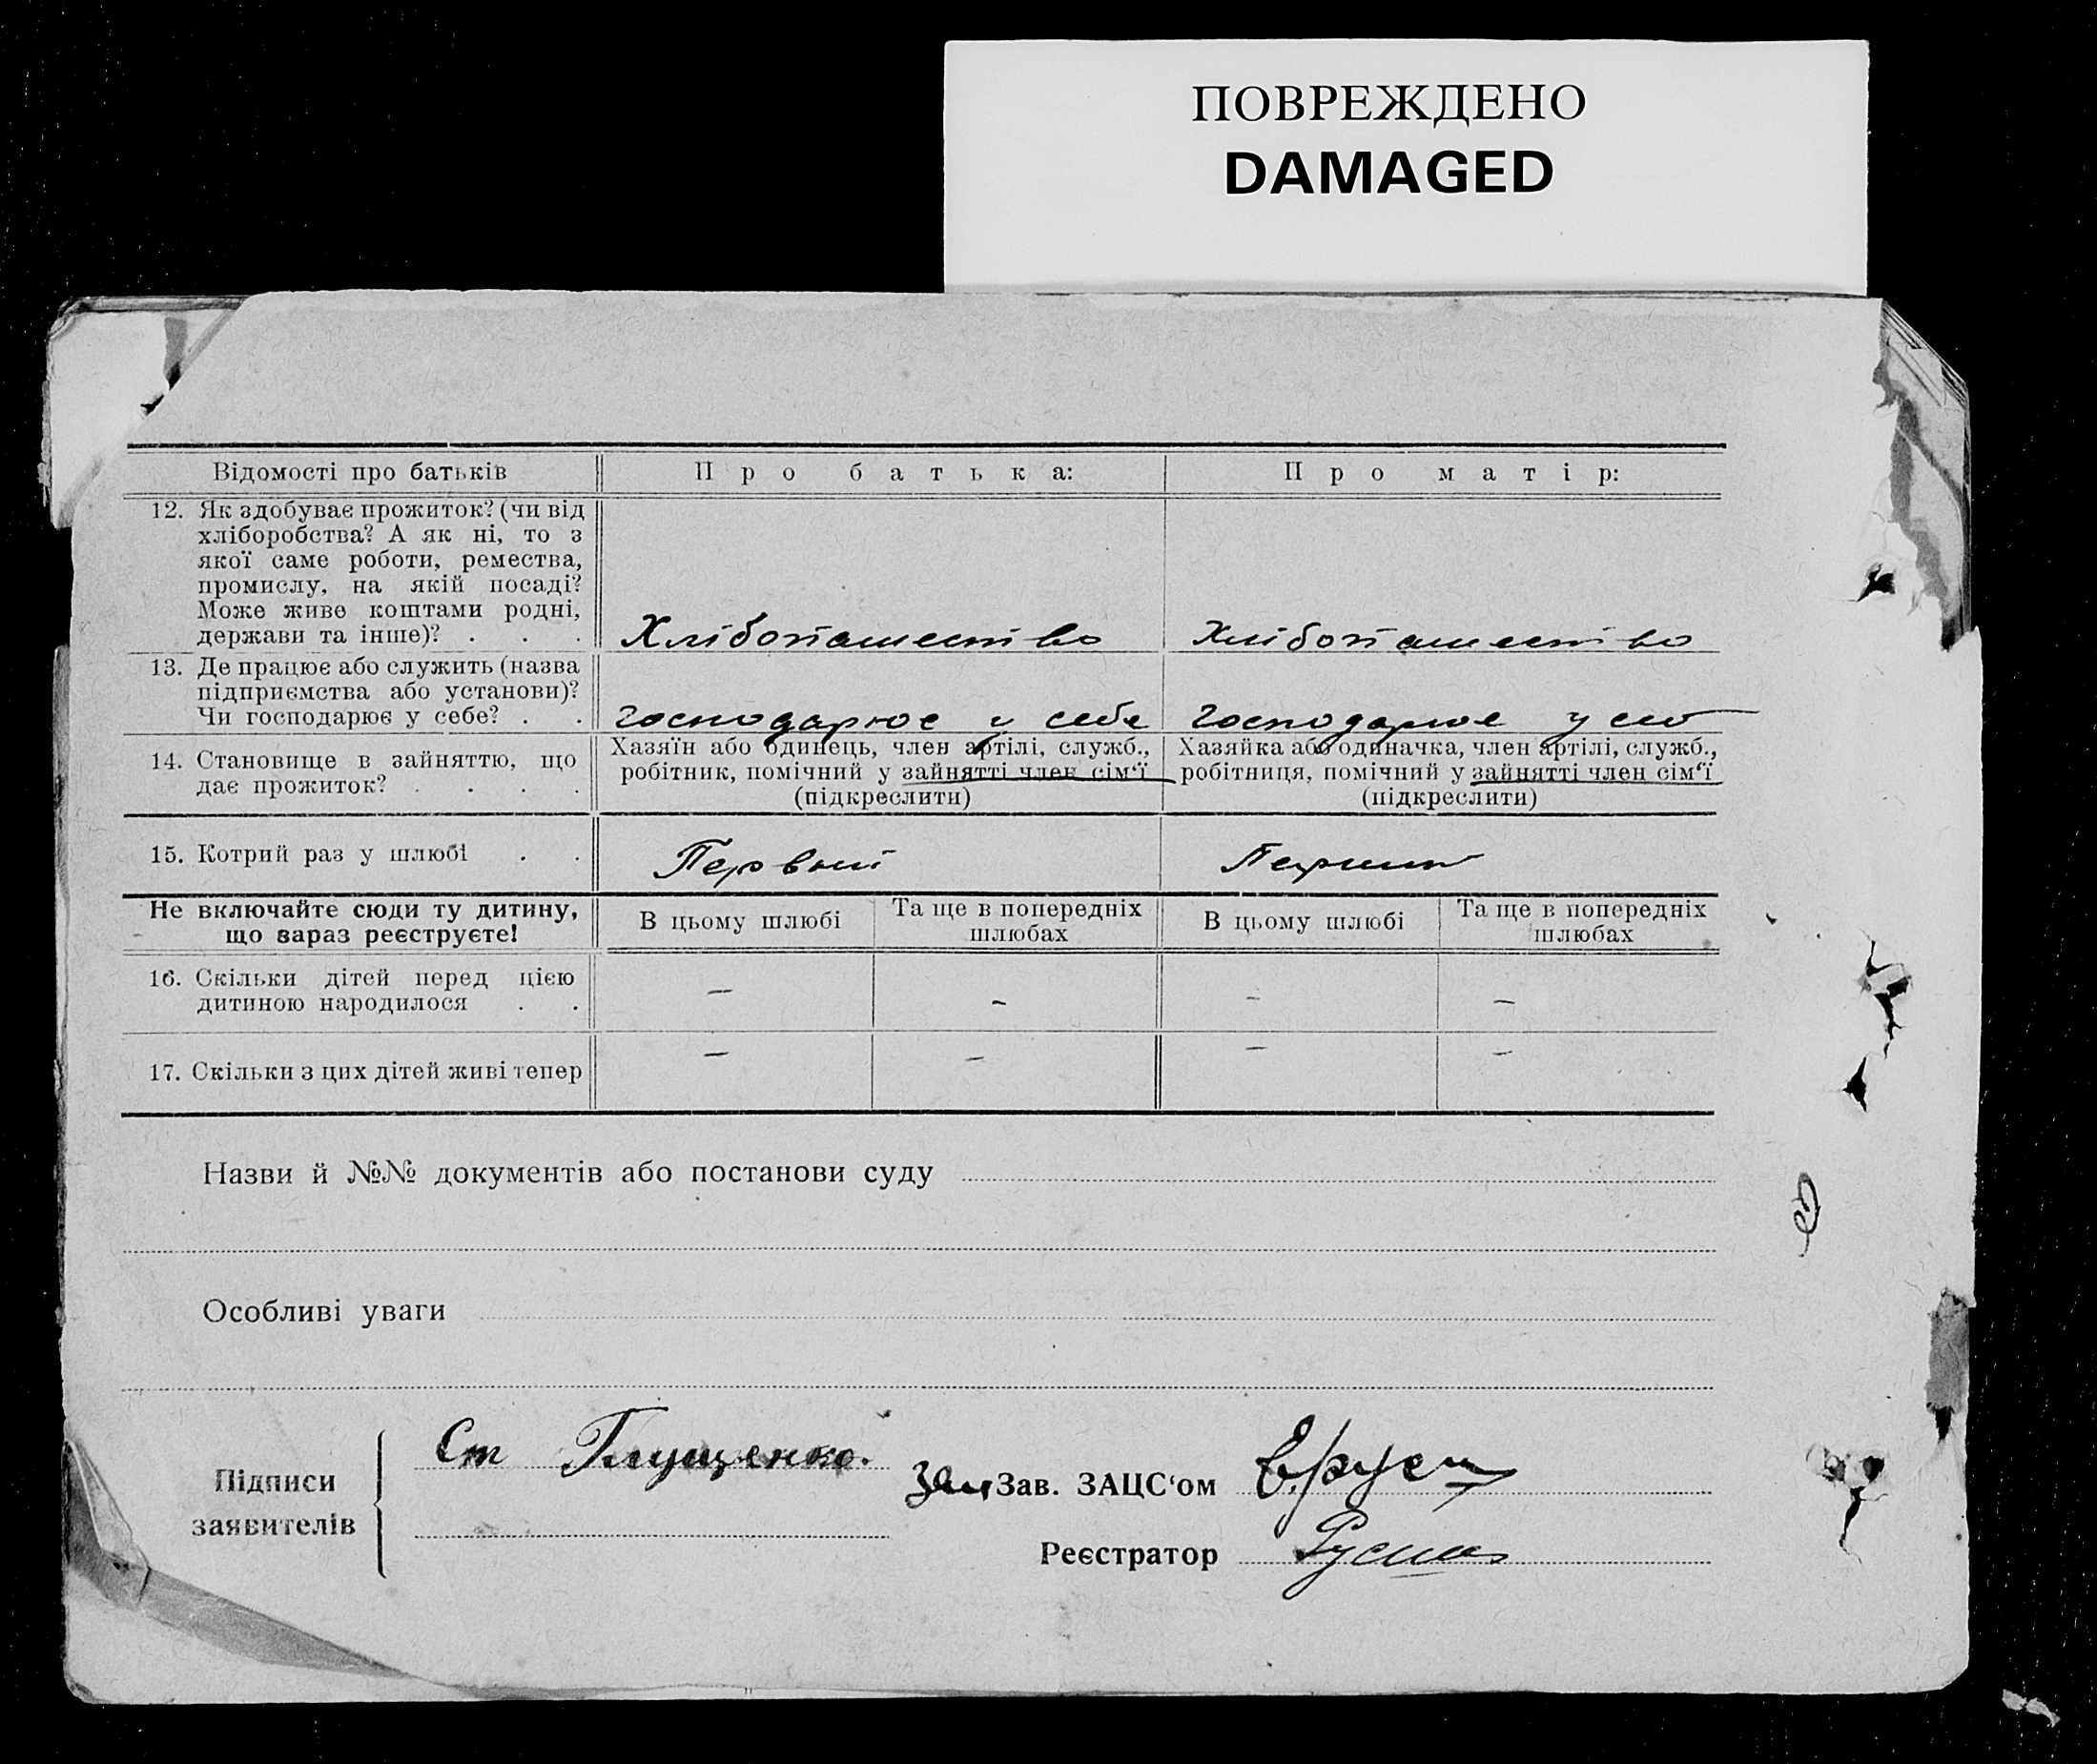 ПОВРЕЖДЕНО
DAMAGED
Відомості про батьків
Про батька:
Про матір:
12. Як здобуває прожиток? (чи від
хліборобства? А як ні, то з
якої саме роботи, ремества,
промислу, на якій посаді?
Може живе коштами родні,
держави та інше)? . . .
Хлібопашество
Хлібопашество
13. Де працює або служить (назва
підприємства або установи)?
Чи господарює у себе? . .
Господарює у себе
Господарює у
14. Становище в зайняттю, що
дає прожиток? . . . .
Хазяїн або одинець, член артілі, служб.,
робітник, помічний у зайнятті член сім‘ї
(підкреслити)
Хазяйка або одиначка, член артілі, служб.,
робітниця, помічний у зайнятті член сім‘ї
(підкреслити)
15. Котрий раз у шлюбі . .
Первый
Не включайте сюди ту дитину,
що зараз реєструєте!
В цьому шлюбі
Та ще в попередніх
шлюбах
В цьому шлюбі
Та ще в попередніх
шлюбах
16. Скільки дітей перед цією
дитиною народилося . .
– – – –
17. Скільки з цих дітей живі тепер
– – – –
Назви й №№ документів або постанови суду
Особливі уваги
Підписи
заявителів
Ст Глущенко.
Зам Зав. ЗАЦС‘ом
Реєстратор